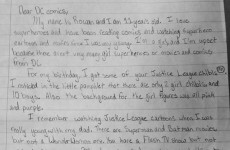 Dear DC comics,
My name is Rowan and I am 11 years old. I love
superheroes and have been reading comics and watching superhero
cartoons and movies since I was very young. I'm a girl, and I'm upset
because there aren't very many girl superheroes or movies and comics
from DC.
For my birthday, I got some of your Justice League
I noticed in the little pamphlet that there are only 2 girl chibis and
10 boys. Also, the background for the girl figures was all pink
and purple.
I remember watching Justice League cartoons when I was
really young with my dad. There are Superman and Batman movies,
but not a Wonder Woman one. You have a Flash TV show but not